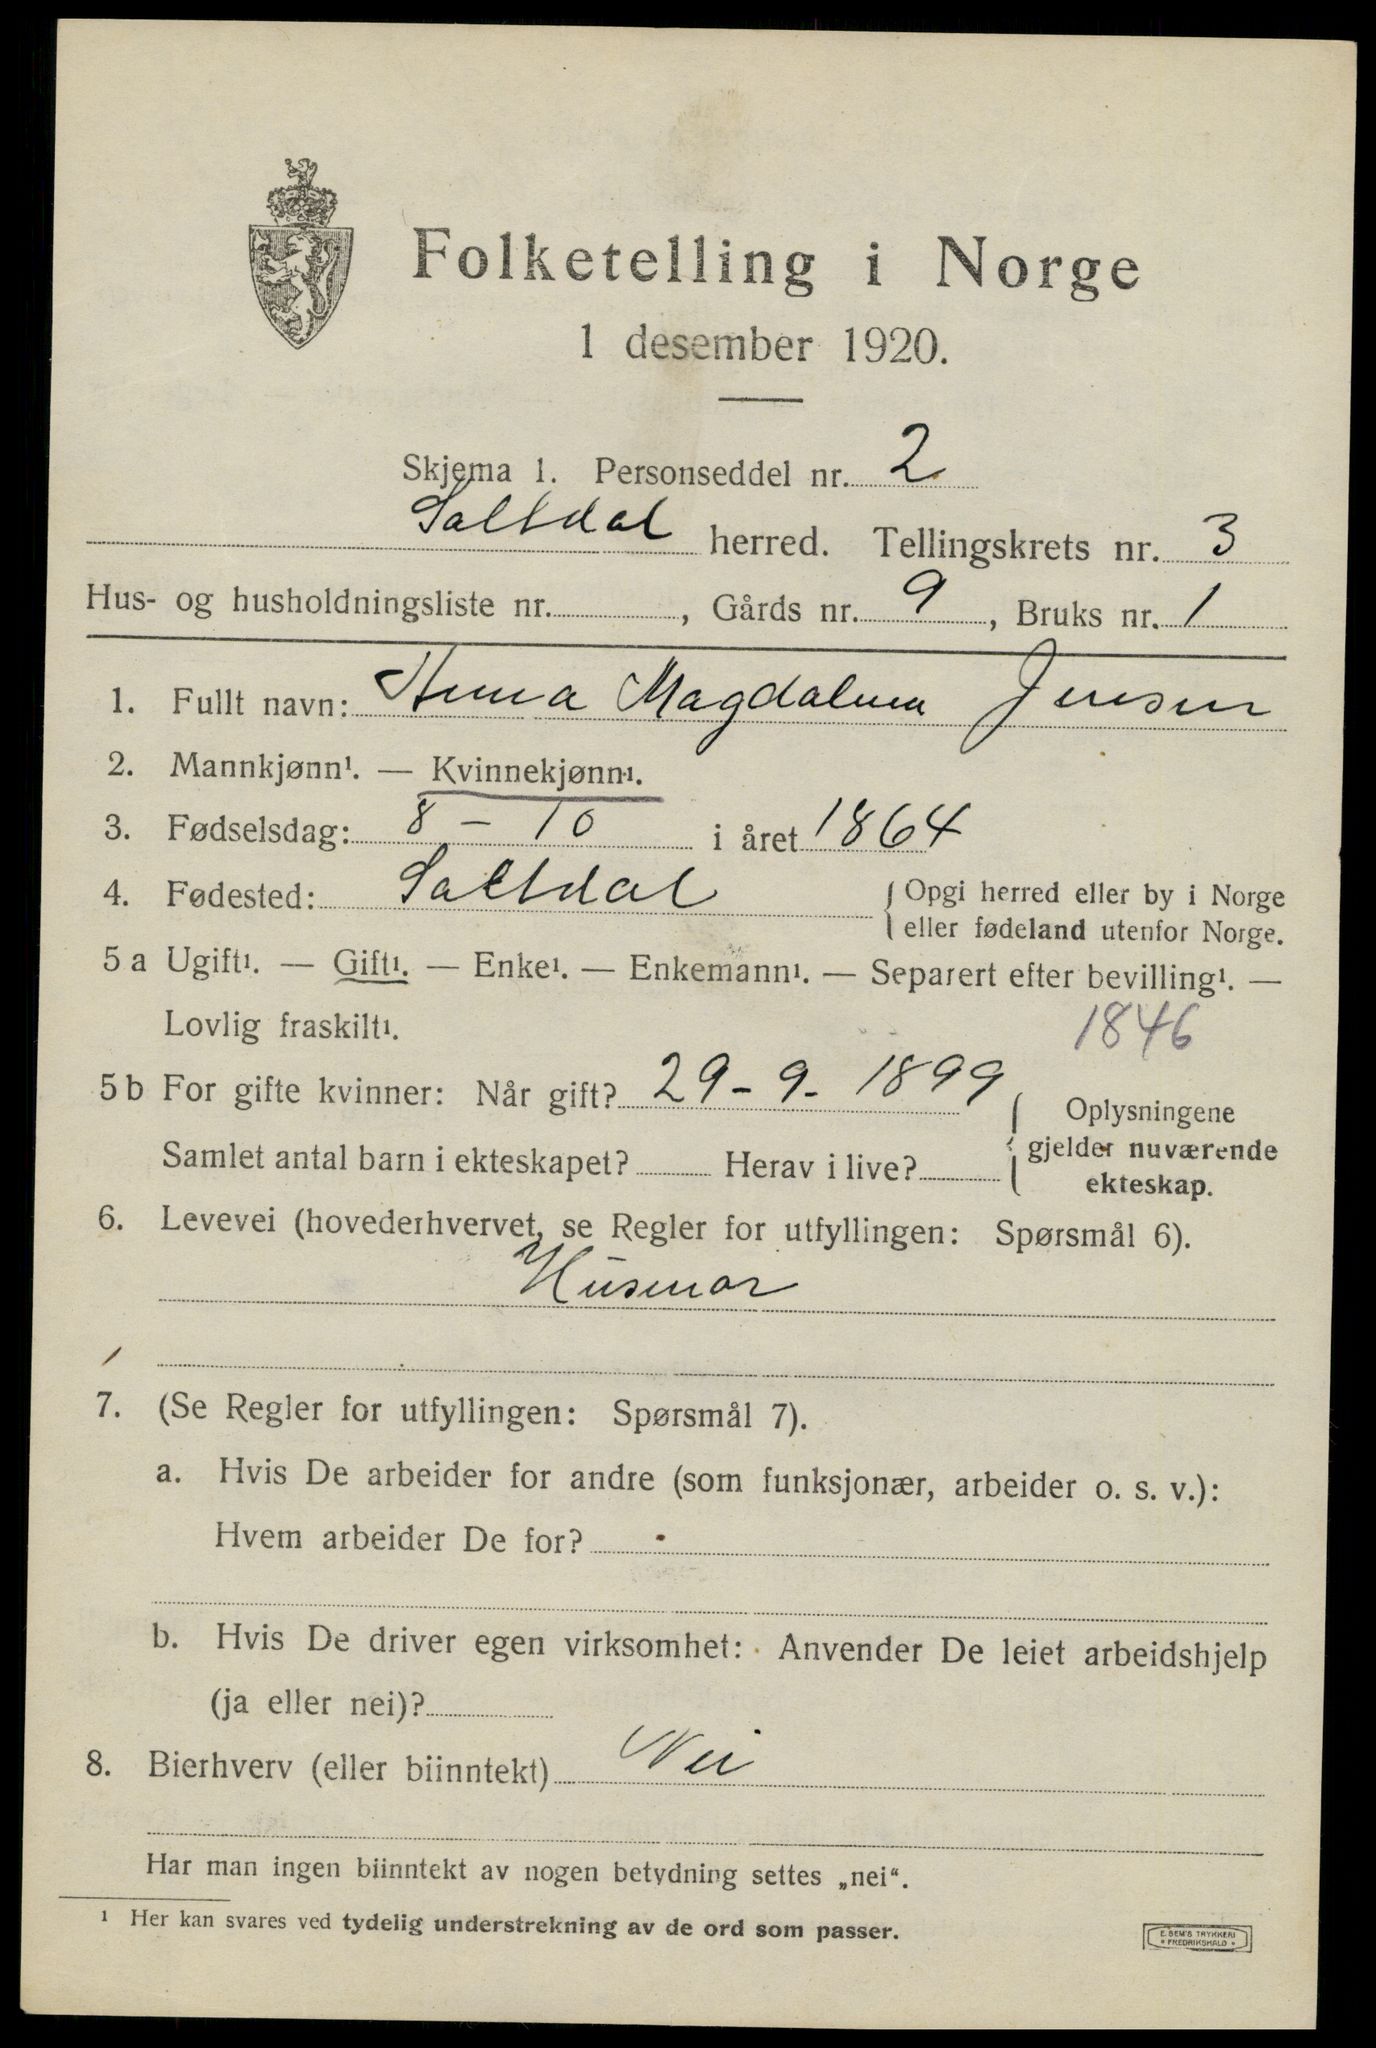 Folketelling i Norge
1 desember 1920.
Skjema 1. Personseddel nr. 2
Saltdal herred. Tellingskrets nr. 3
Hus- og husholdningsliste nr. , Gårds nr. 9, Bruks nr. 1
1. Fullt navn: Anna Magdalena Jensen
2. Mannkjønn¹. — Kvinnekjønn¹.
3. Fødselsdag: 8 – 10 i året 1864
4. Fødested: Saltdal { Opgi herred eller by i Norge
eller fødeland utenfor Norge.
5 a Ugift¹. — Gift¹. — Enke¹. — Enkemann¹. — Separert efter bevilling¹. —
Lovlig fraskilt¹. 1846
5 b For gifte kvinner: Når gift? 29 - 9 - 1899
Oplysningene
Samlet antal barn i ekteskapet? Herav i live? { gjelder nuværende
ekteskap.
6. Levevei (hovederhvervet, se Regler for utfyllingen: Spørsmål 6).
Husmor
7. (Se Regler for utfyllingen: Spørsmål 7).
a. Hvis De arbeider for andre (som funksjonær, arbeider o. s. v.):
Hvem arbeider De for?
b. Hvis De driver egen virksomhet: Anvender De leiet arbeidshjelp
(ja eller nei)?
8. Bierhverv (eller biinntekt) Nei
Har man ingen biinntekt av nogen betydning settes „nei“.
¹ Her kan svares ved tydelig understrekning av de ord som passer.
E. SEM'S TRYKKERI
• FREDRIKSHALD •